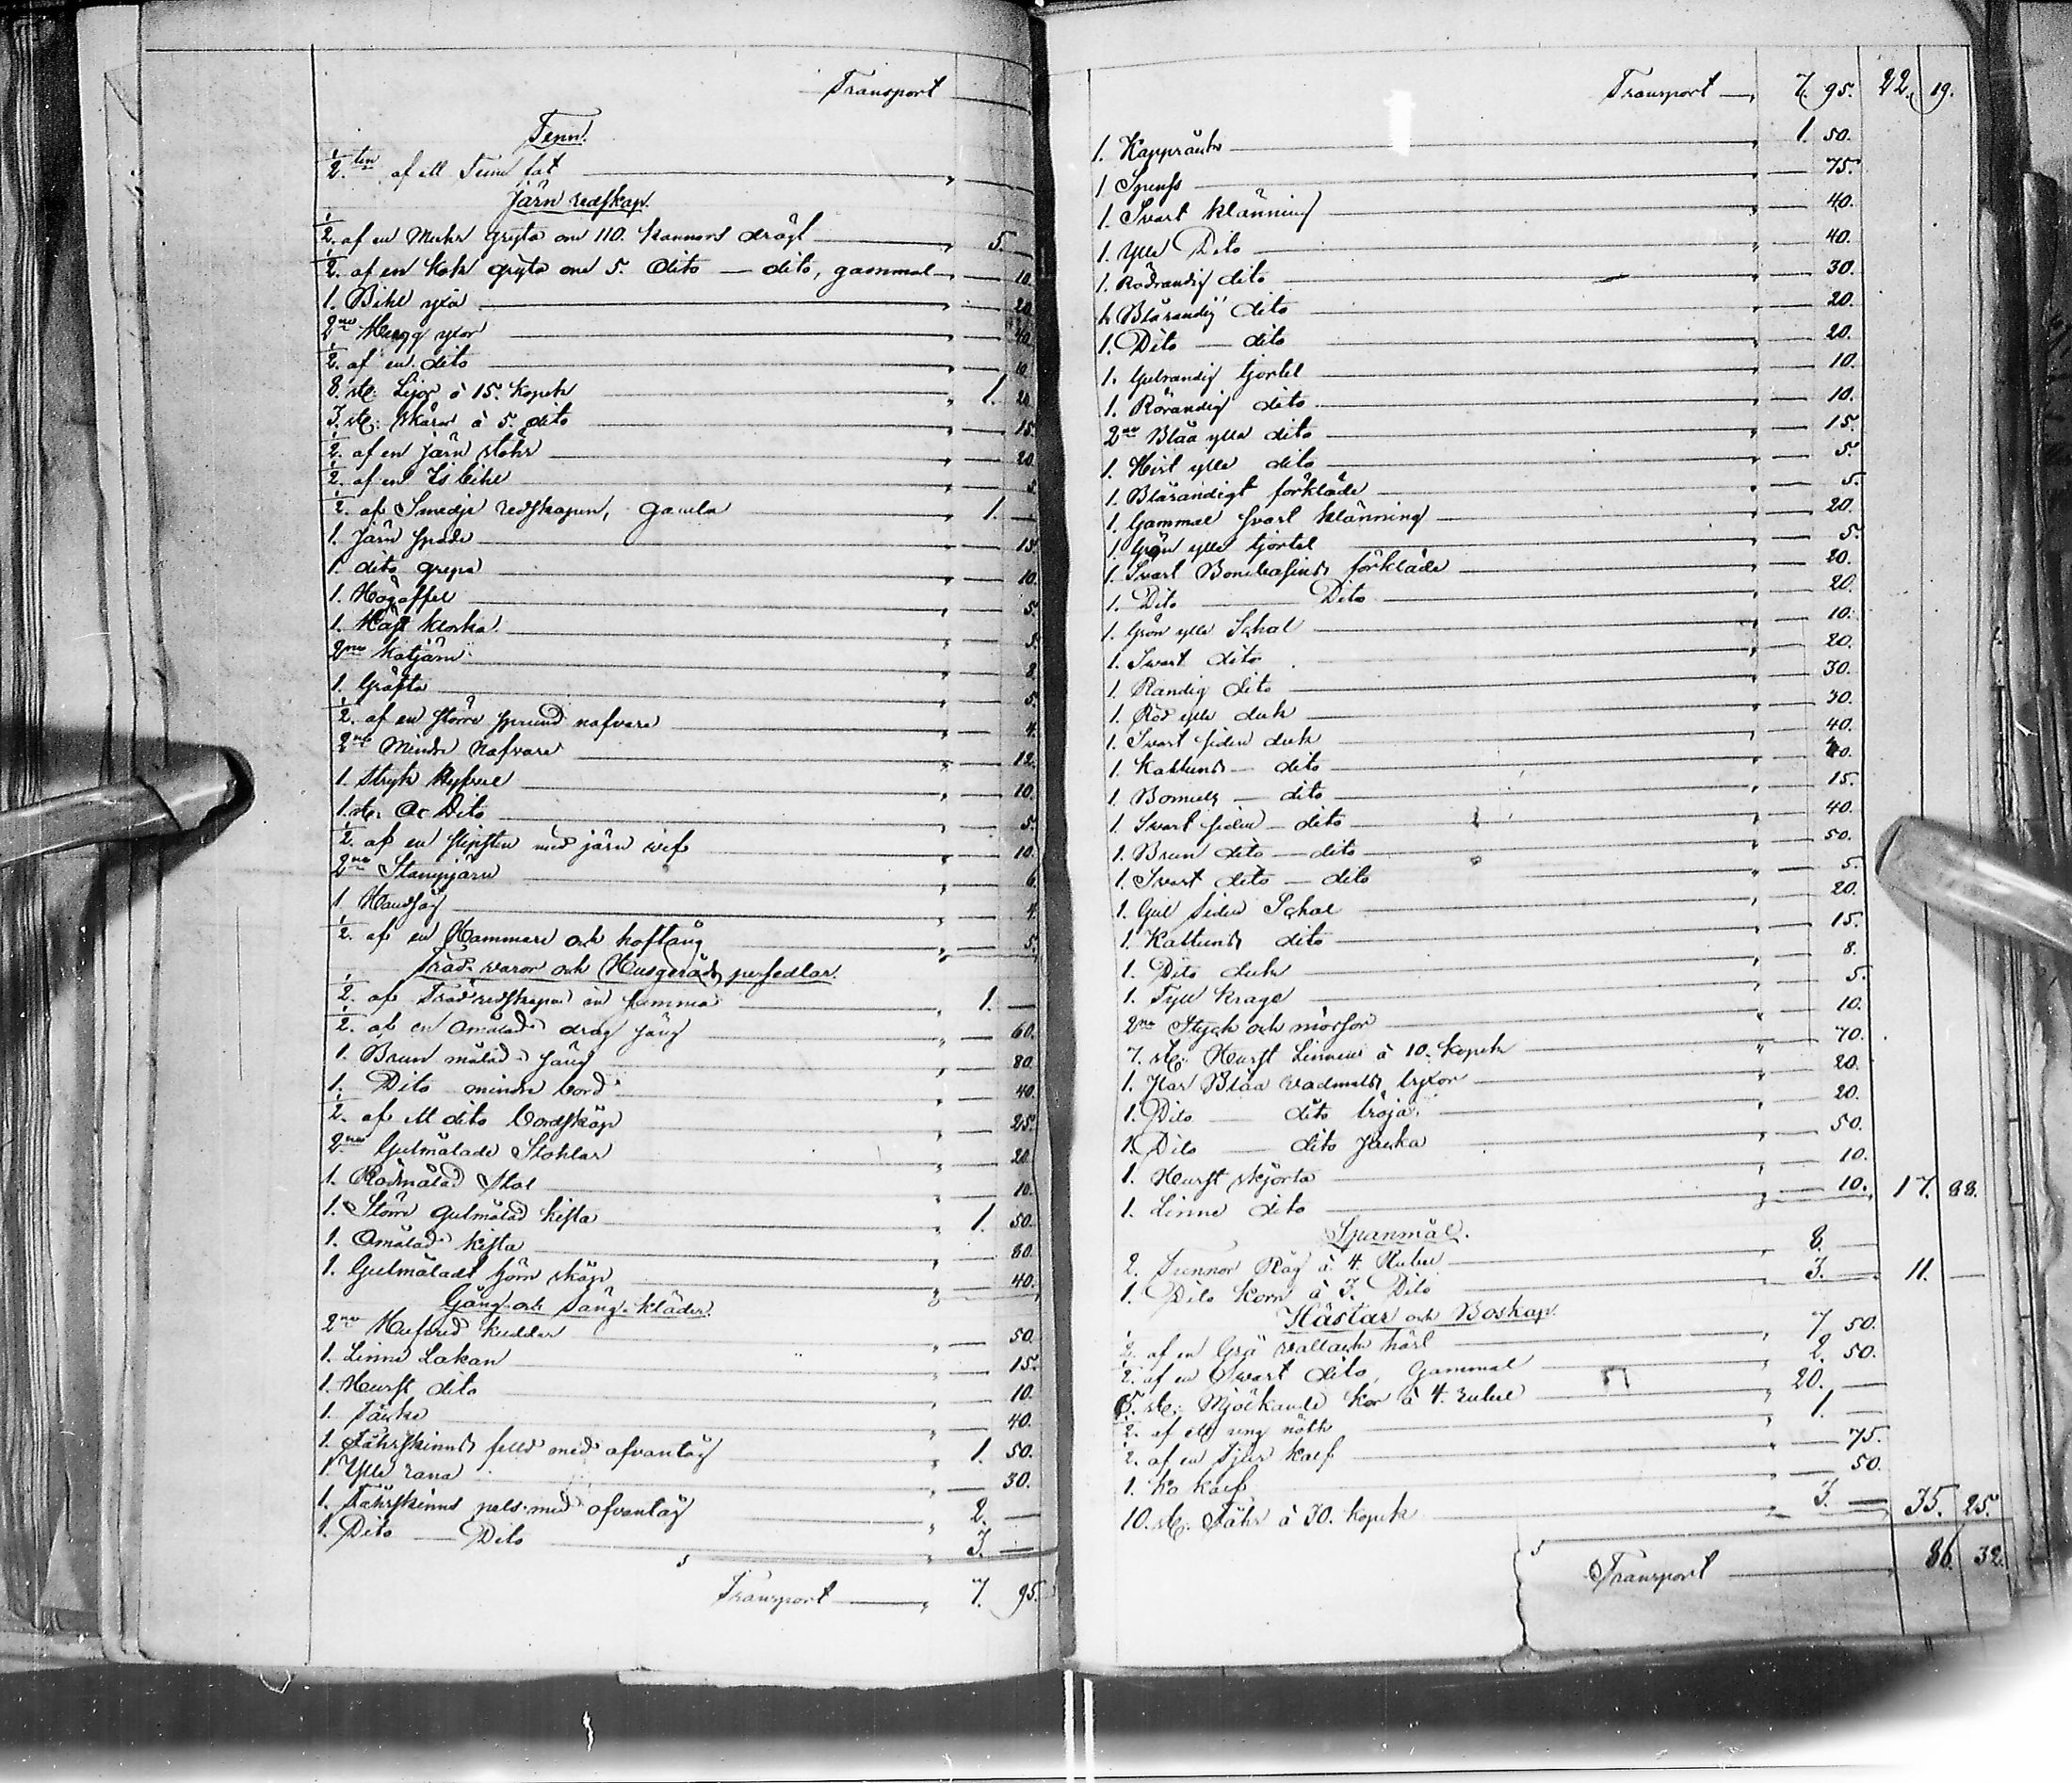 Transport
Tenn.
1/2ten af ett Tenn fat
Järn redskap.
1/2. af en Muhr gryta om 110. kannors drägt 5. —
1/2. af en Kok gryta om 5. dito — dito, gammal 10.
1. Bihl yxa 20.
2ne Hugg yxor 40.
1/2. af en dito 10.
8. st: Lijor à 15. Kopek 1. 20.
3. st: Skäror à 5. dito 15.
1/2. af en järn stöhr 20.
1/2. af en Is bihl 5.
1/2. af Smedje redskapen, gamla 1. —
1. Järn spade 15.
1. dito grepa 10.
1. Högaffel 5.
1. klocka 5.
2ne 8.
1. Gräfta 5.
1/2. af en större sprund nafvare 4.
2ne Mindre Nafvare 12.
1. Stryk Hyfvel 10.
1. st: Dito 5.
1/2. af en slipsten med järn vef 10.
2ne Stämjärn 6.
1. Handsåg 4.
1/2. af en Hammare och hoftång 5.
Träd varor och Husgeråds persedlar.
1/2. af Trädredskapen än samma 1. —
1/2. af en Omålad drag säng 60.
1. Brun målad säng 80.
1. Dito mindre bord 40.
1/2. af ett dito bordskåp 25.
2ne Gulmålade Stohlar 20.
1. Rödmålad Stol 10.
1. Större gulmålad kista 1. 50.
1. Omålad kista 80.
1. Gulmåladt hörn skåp 40.
Gång- och Säng-kläder.
2ne Hufvud kuddar 50.
1. Linne Lakan 15.
1. Hurst dito 10.
1. Täcke 40.
1. Fåhrskinns fäll med ofvantåg 1. 50.
1. Ylle rana 30.
1. Fåhrskinns pels med ofvantåg 2. —
1. Dito — Dito 3. —
Transport 7. 95.
Transport 7. 95. 22. 19.
1. 1. 50.
1. 75.
1. Svart klänning 40.
1. Ylle Dito 40.
1. Rödrandig dito 30.
1. Blårandig dito 20.
1. Dito — dito 20.
1. Gulrandig kjortel 10.
1. Rörandig dito 10.
2ne Blåa ylle dito 15.
1. Hvit ylle dito 5.
1. Blårandigt förkläde 5.
1. Gammal svart klänning 20.
1. Grön ylle kjortel 5.
1. Svart Bombasins förkläde 20.
1. Dito — Dito 20.
1. Grön ylle Schal 10.
1. Svart dito 20.
1. Randig dito 30.
1. Röd ylle duk 30.
1. Svart siden duk 40.
1. Kattuns — dito 40.
1. Bomulls — dito 15.
1. Svart siden — dito 40.
1. Brun dito — dito 50.
1. Svart dito — dito 5.
1. Gul siden Schal 20.
1. Kattuns dito 15.
1. Dito duk 8.
1. Tyll krage 5.
2ne Styck och mössor 10.
7. st: Hurst Linnen à 10. Kopek 70.
1. Par Blåa vadmals byxor 20.
1. Dito — dito tröja 20.
1. Dito — dito Jacka 50.
1. Hurst skjorta 10.
1. Linne dito 10. 17. 88.
Spanmål.
2. Tunnor Råg à 4. Rubel 8. —
1. Dito Korn à 3. Dito 3. — 11. —
Hästar och Boskap.
1/2. af en Grå vallack häst 7 50.
1/2. af en Svart dito, Gammal 2. 50.
5. st: Mjölkande Kor à 4. rubel 20. —
1/2. af ett ung nöth 1. —
1/2. af en Tjur kalf 75.
1. Ko kalf 50.
10. st: Fåhr à 30. kopek 3. — 35. 25.
Transport 86. 32.